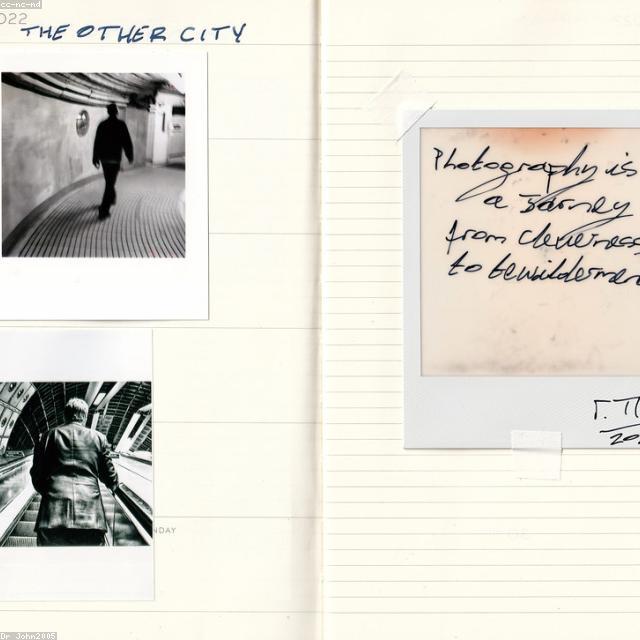 cc-nc-nd
022
THE OTHER CITY
NDAY
Photography is
a Jorney
from cleverness
to bewildermen
Γ. Π
20
Dr John2005